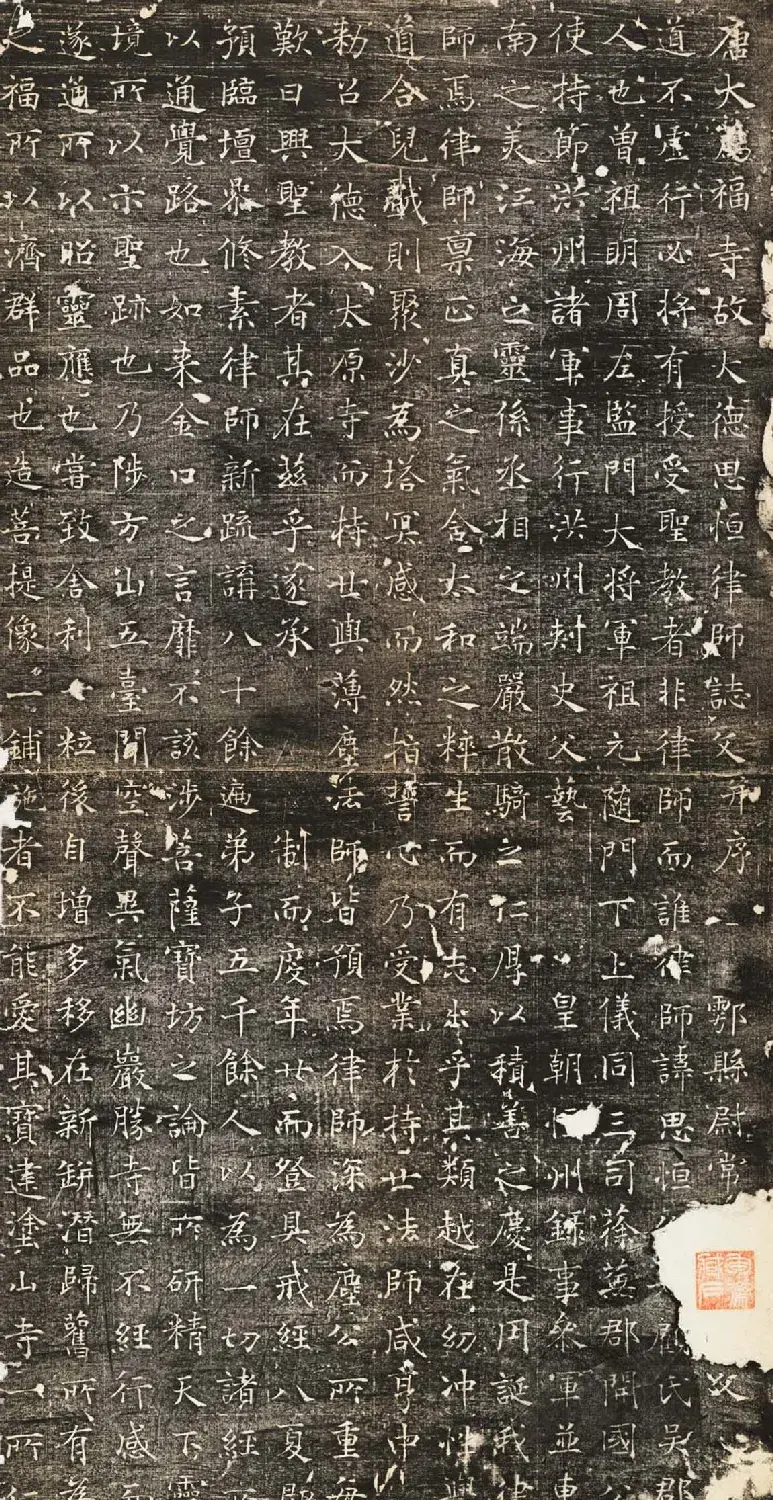 唐大薦福寺故大德思恒律師誌文并序 鄠縣尉常
道不虛行必將有授受聖教者非律師而誰律師諱思恒 顧氏吳郡
人也曾祖明周左監門大將軍祖元隨門下上儀同三司蔡蕪郡開國公
使持節洪州諸軍事行洪州刺史父藝 皇朝 州錄事參軍並東
南之美江海之靈係丞相之端嚴散騎之仁厚以積善之慶是用誕我律
師焉律師稟正真之氣含太和之粹生而有志出乎其類越在幼沖性與
道合兒戲則聚沙為塔冥感而然指誓心乃受業於持世法師咸亨中
勅召大德入太原寺而持世與薄塵法師皆預焉律師深為塵公所重每
歎曰興聖教者其在茲乎遂承 制而度年廿而登具戒經八夏
預臨壇眾修素律師新疏講八十餘遍弟子五千餘人以為一切諸經所
以通覺路也如來金口之言靡不該涉菩薩寶坊之論皆所研精天下靈
境所以示聖跡也乃陟方山五臺聞空聲異氣幽巖勝寺無不經行感而
遂通所以昭靈應也嘗致舍利一粒後自增多移在新缾潛歸舊所有為
之福所以濟群品也造菩提像一鋪施者不能愛其寶建塗山寺一所